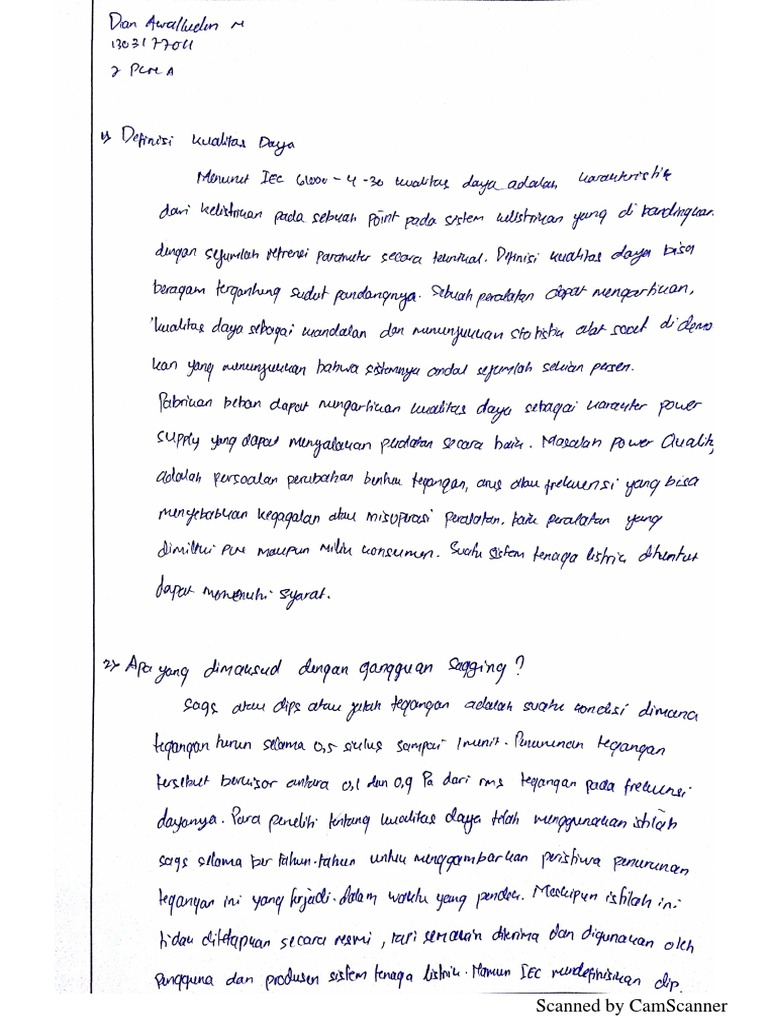 Dian Awalludin M
1303177011
2 PCM A
1) Definisi Kualitas Daya
Menurut IEC 61000-4-30 kualitas daya adalah karakteristik
dari kelistrikan pada sebuah point pada sistem kelistrikan yang di bandingkan.
dengan sejumlah refrensi parameter secara teknikal. Definisi kualitas daya bisa
beragam tergantung sudut pandangnya. Sebuah peralatan dapat mengartikan,
kualitas daya sebagai keandalan dan menunjukkan statistik alat saat di demo
kan yang menunjukkan bahwa sistemnya andal sejumlah sekian persen.
Pabrikan beban dapat mengartikan kualitas daya sebagai karakter power
supply yang dapat menyalakan peralatan secara baik. Masalah Power Quality,
adalah persoalan perubahan bentuk tegangan, arus atau frekuensi yang bisa
menyebabkan kegagalan atau misoperasi peralatan. baik peralatan yang
dimiliki maupun milik konsumen. Suatu sistem tenaga listrik dituntut
dapat memenuhi syarat.
2) Apa yang dimaksud dengan gangguan sagging?
Sags atau dips atau tegangan adalah suatu kondisi dimana
tegangan turun selama 0,5 siklus sampai 1 menit. Penurunan tegangan
tersebut berkisar antara 0,1 dan 0,9 Pa dari rms tegangan pada frekuensi
dayanya. Para peneliti tentang kualitas daya telah menggunakan istilah
sags selama ber tahun-tahun untuk menggambarkan peristiwa penurunan
tegangan ini yang terjadi dalam waktu yang pendek. Meskipun istilah ini
tidak ditetapkan secara resmi, tapi semakin diterima dan digunakan oleh
pengguna dan produsen sistem tenaga listrik. Namun IEC mendefinisikan dip.
Scanned by CamScanner